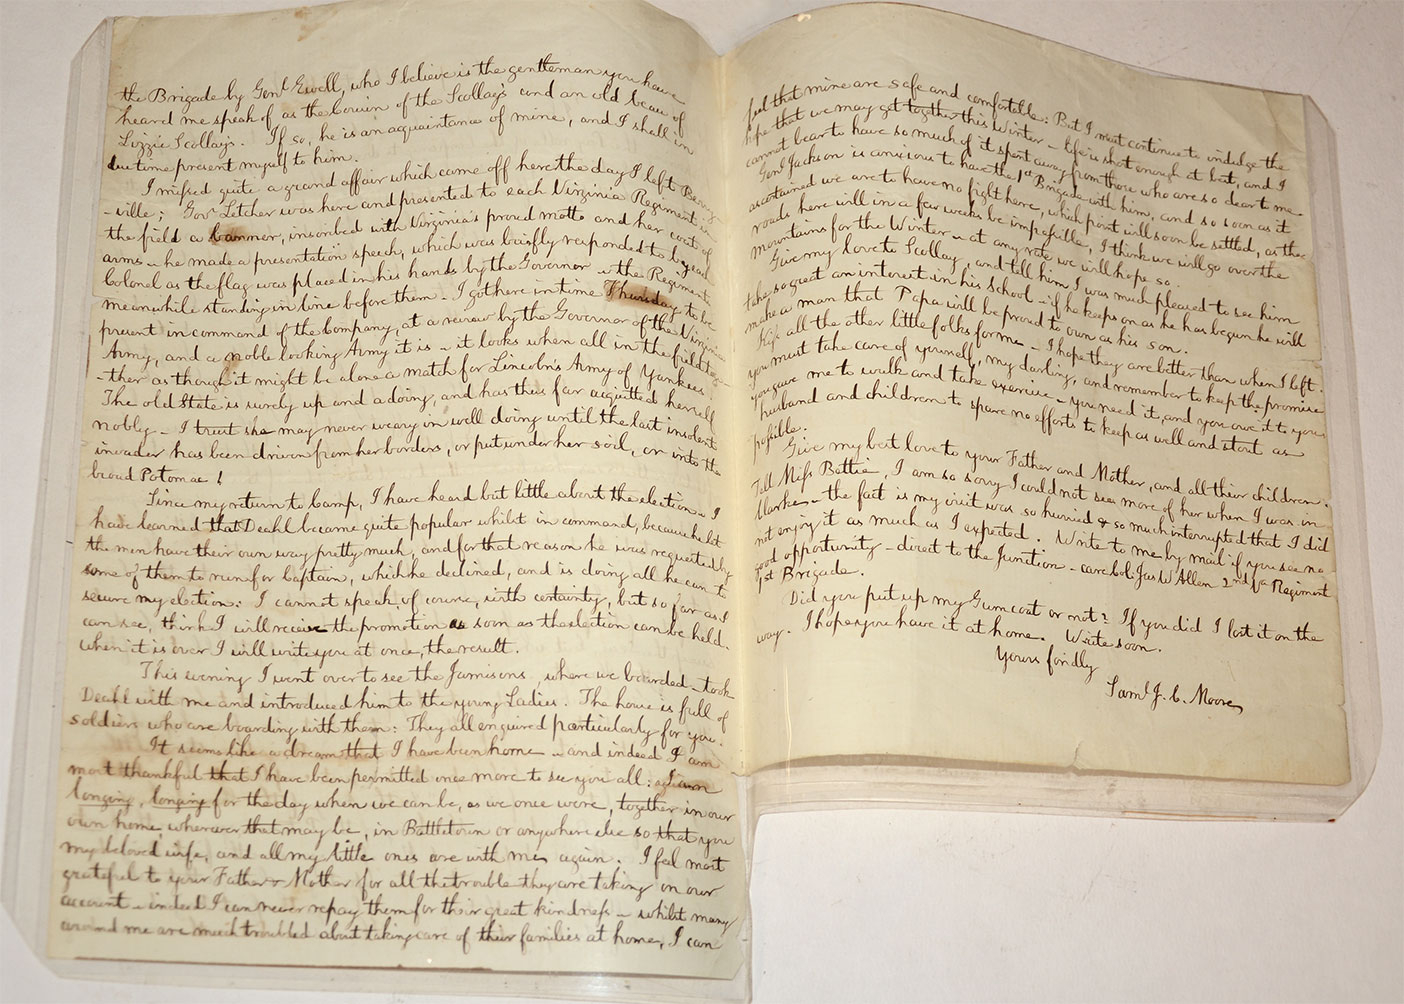 the Brigade by Genl Ewell, who I believe is the gentleman you have
heard me speak of as the Cousin of the Scollays and an old beau of
Lizzie Scollays. If so, he is an acquaintance of mine, and I shall in
due time present myself to him.
I missed quite a grand affair which came off here the day I left Berry-
-ville; Govr Letcher was here and presented to each Virginia Regiment in
the field a banner, inscribed with Virginia's proud motto and her coat of
arms - he made a presentation speech, which was briefly responded to by each
Colonel as the flag was placed in his hands by the Governor - the Regiments
meanwhile standing in line before them - I got here in time Thursday to be
present in command of the Company, at a review by the Governor of the Virginia
Army, and a noble looking Army it is - it looks when all in the field toge-
-ther as though it might be alone a match for Lincoln's Army of Yankees.
The old State is surely up and a doing, and has thus far acquitted herself
nobly - I trust she may never weary in well doing until the last insolent
invader has been driven from her borders, or put under her soil, or into the
broad Potomac!
Since my return to Camp, I have heard but little about the election - I
have learned that Deahl became quite popular whilst in command, because he let
the men have their own way pretty much, and for that reason he was requested by
some of them to run for Captain, which he declined, and is doing all he can to
secure my election: I cannot speak, of course, with certainty, but so far as I
can see, think I will receive the promotion as soon as the election can be held.
when it is over I will write you at once, the result.
This evening I went over to see the Jamisons, where we boarded - took
Deahl with me and introduced him to the young Ladies. The house is full of
soldiers who are boarding with them: They all enquired particularly for you.
It seems like a dream that I have been home - and indeed I am
most thankful that I have been permitted once more to see you all: I am
longing, longing for the day when we can be, as we once were, together in our
own home, wherever that may be, in Battletown or anywhere else so that you
my beloved wife, and all my little ones are with me again. I feel most
grateful to your Father & Mother for all the trouble they are taking on our
account - indeed I can never repay them for their great kindness - whilst many
around me are much troubled about taking care of their families at home, I can
feel that mine are safe and comfortable: But I must continue to indulge the
hope that we may get together this Winter - life is short enough at best, and I
cannot bear to have so much of it spent away from those who are so dear to me.
Genl Jackson is anxious to have the 1st Brigade with him, and so soon as it
ascertained we are to have no fight here, which point will soon be settled, as the
roads here will in a few weeks be impassible, I think we will go over the
mountains for the Winter - at any rate we will hope so.
Give my love to Scollay, and tell him I was much pleased to see him
take so great an interest in his School - if he keeps on as he has begun he will
make a man that Papa will be proud to own as his son.
Kiss all the other little folks for me - I hope they are better than when I left.
you must take care of yourself, my darling, and remember to keep the promise
you gave me to walk and take exercise - you need it, and you owe it to your
husband and children to spare no efforts to keep as well and stout as
possible.
Give my best love to your Father and Mother, and all their children.
Tell Miss Bettie, I am so sorry I could not see more of her when I was in
Clarke - the fact is my visit was so hurried & so much interrupted that I did
not enjoy it as much as I expected. Write to me by mail if you see no
good opportunity - direct to the Junction - care Col: Jas W Allen 2nd Va Regiment
1st Brigade.
Did you put up my Gum coat or not? If you did I lost it on the
way. I hope you have it at home. Write soon.
Yours fondly
Saml J. C. Moore